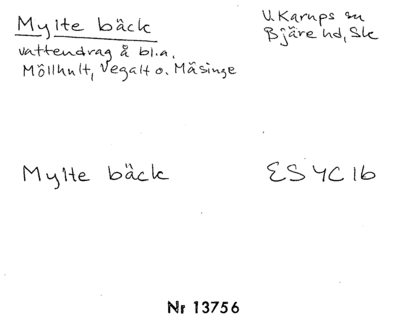 Mylte bäck
V. Karups sn
Bjäre hd, Sk
vattendrag å bl.a.
Möllhult, Vegalt o. Mäsinge
Mylte bäck
ES 4C1b
Nr 13756